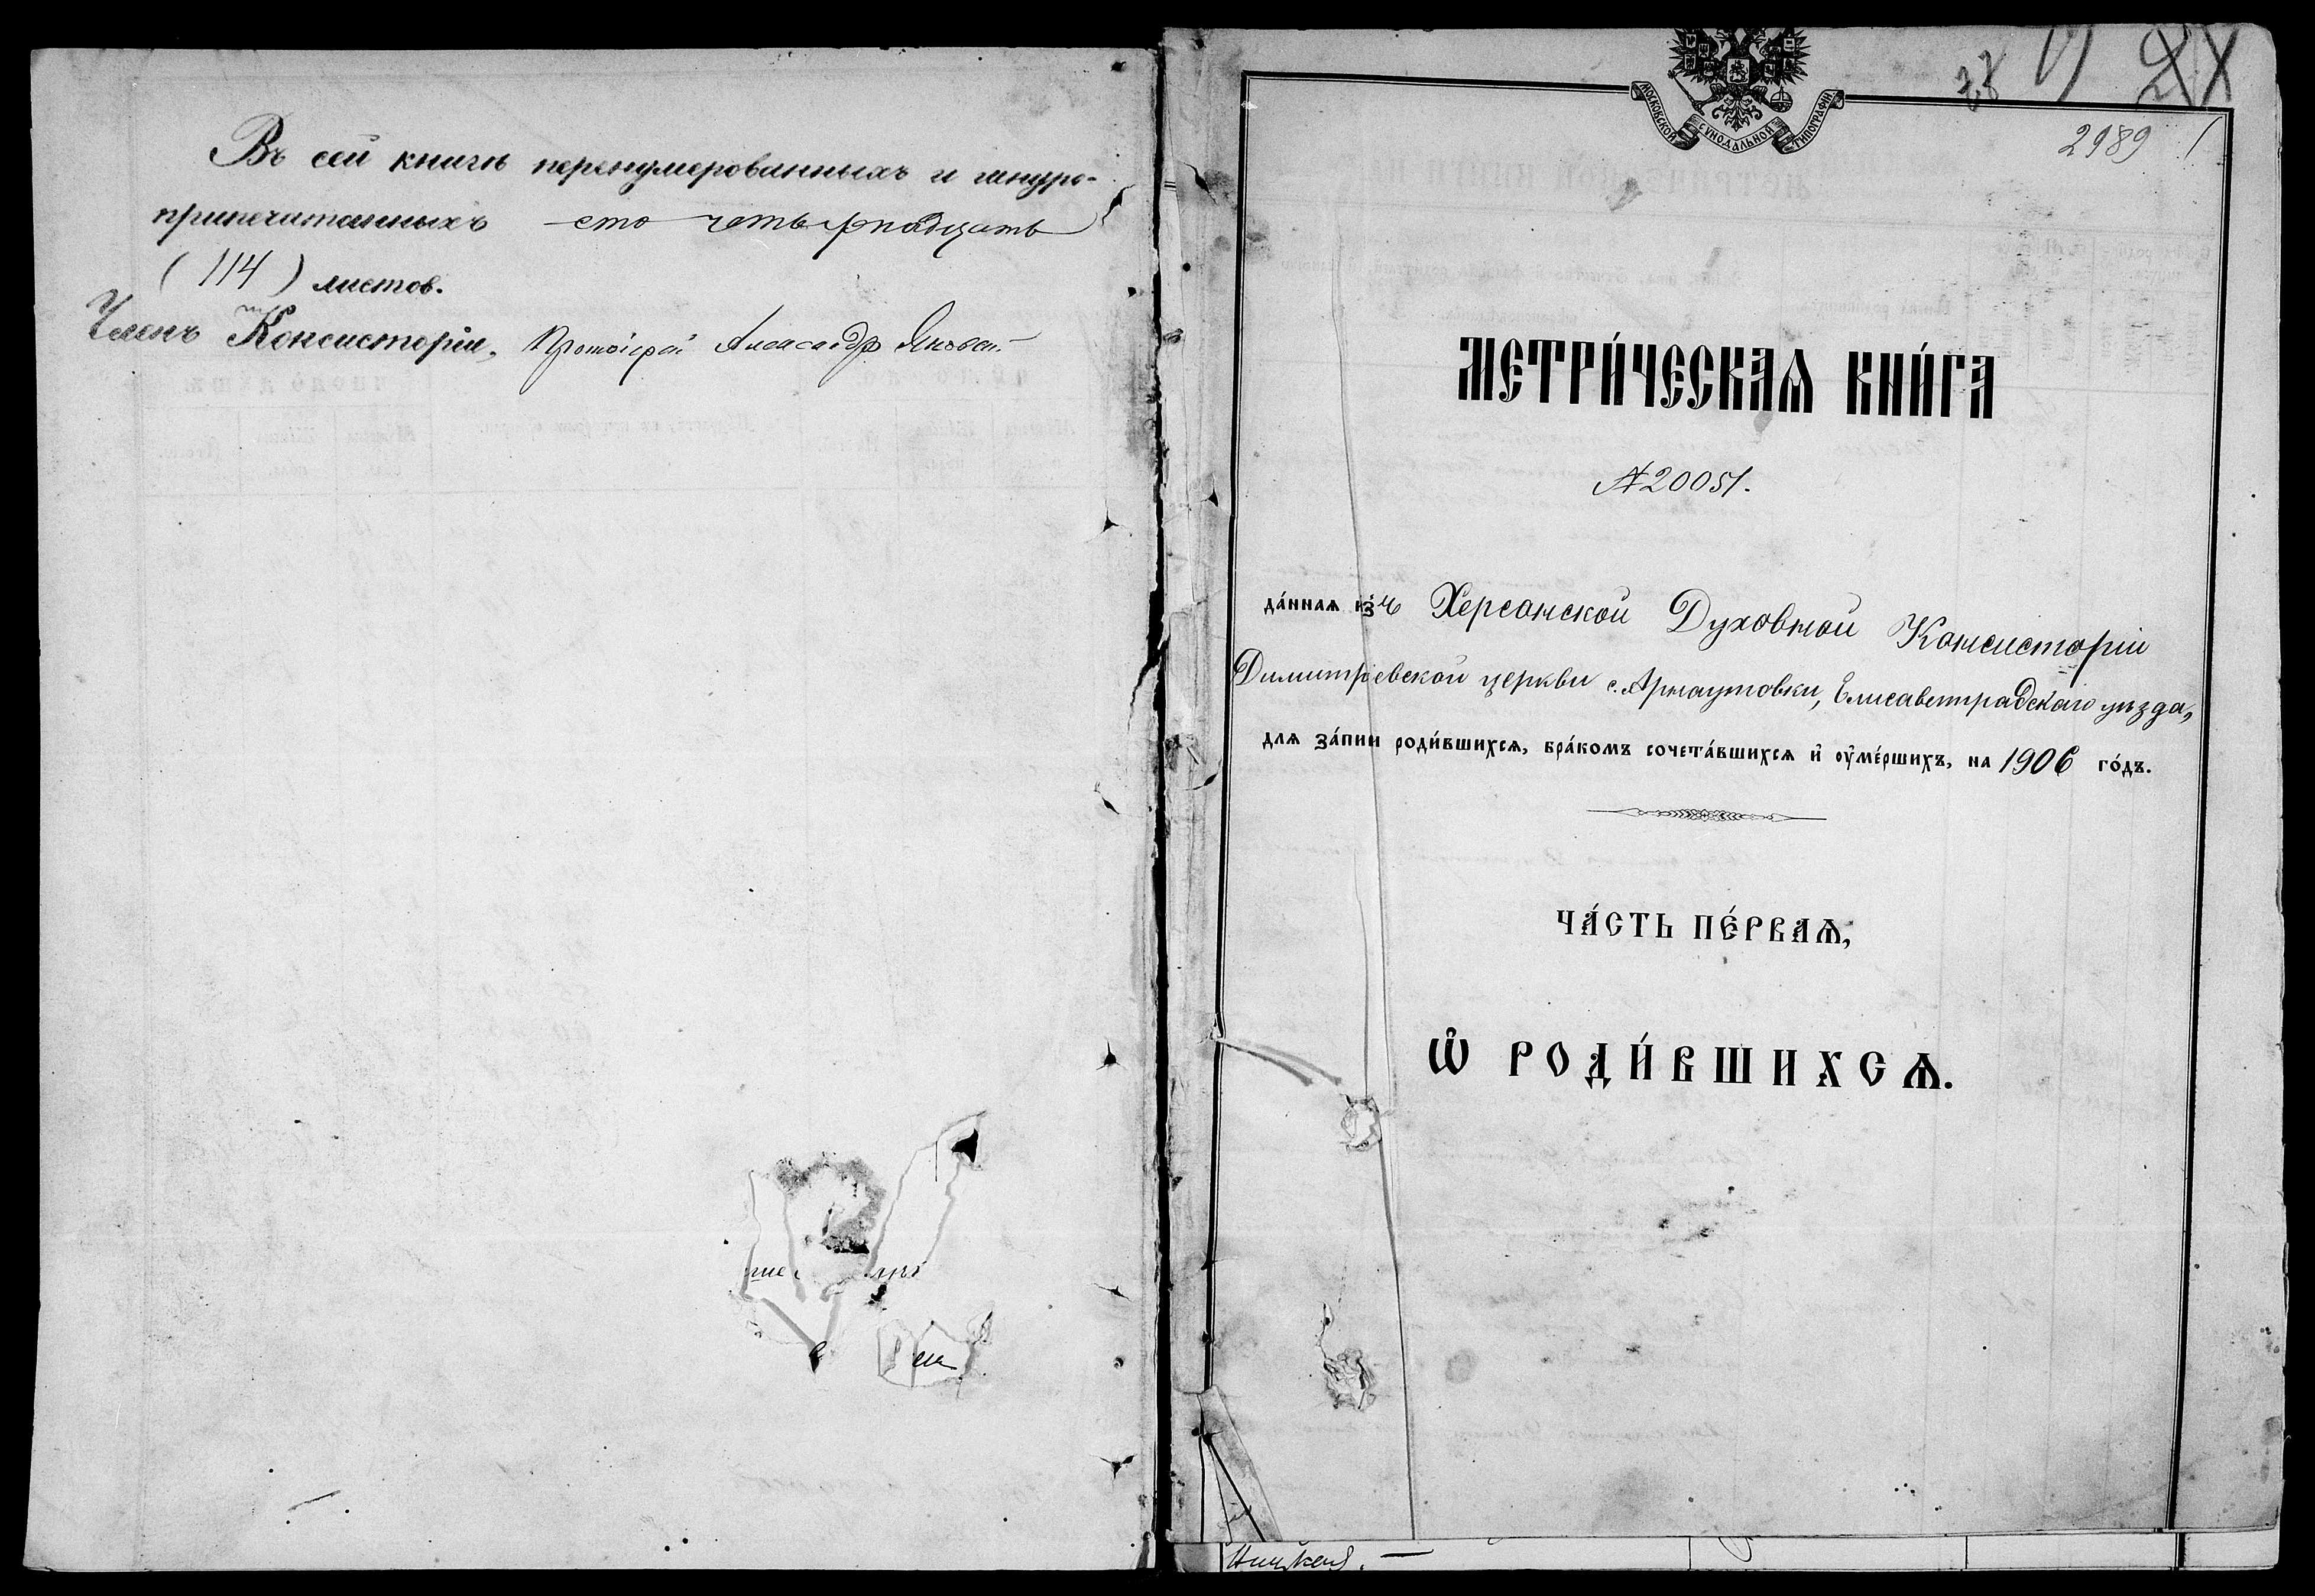 Въ сей книгѣ перенумерованныхъ и шнуро-
припечатанныхъ сто четырнадцать
(114) листов.
Членъ Консисторіи, Протоіерей Александр
МОСКОВСКОЙ СѴНОДАЛЬНОЙ ТИПОГРАФІИ
2989 1
МЕТРИ́ЧЕСКАѦ КНИ́ГА
№ 20051.
да́ннаѧ и҆зъ Херсонской Духовной Консисторіи
Димитріевской церкви с. Арнаутовки, Елисаветградскаго уѣзда,
для за́писи роди́вшихсѧ, бра́комъ сочета́вшихсѧ и҆ оу҆ме́ршихъ, на 1906 го́дъ.
ЧА́СТЬ ПЕ́РВАѦ,
Ѡ҆ РОДИ́ВШИХСѦ.